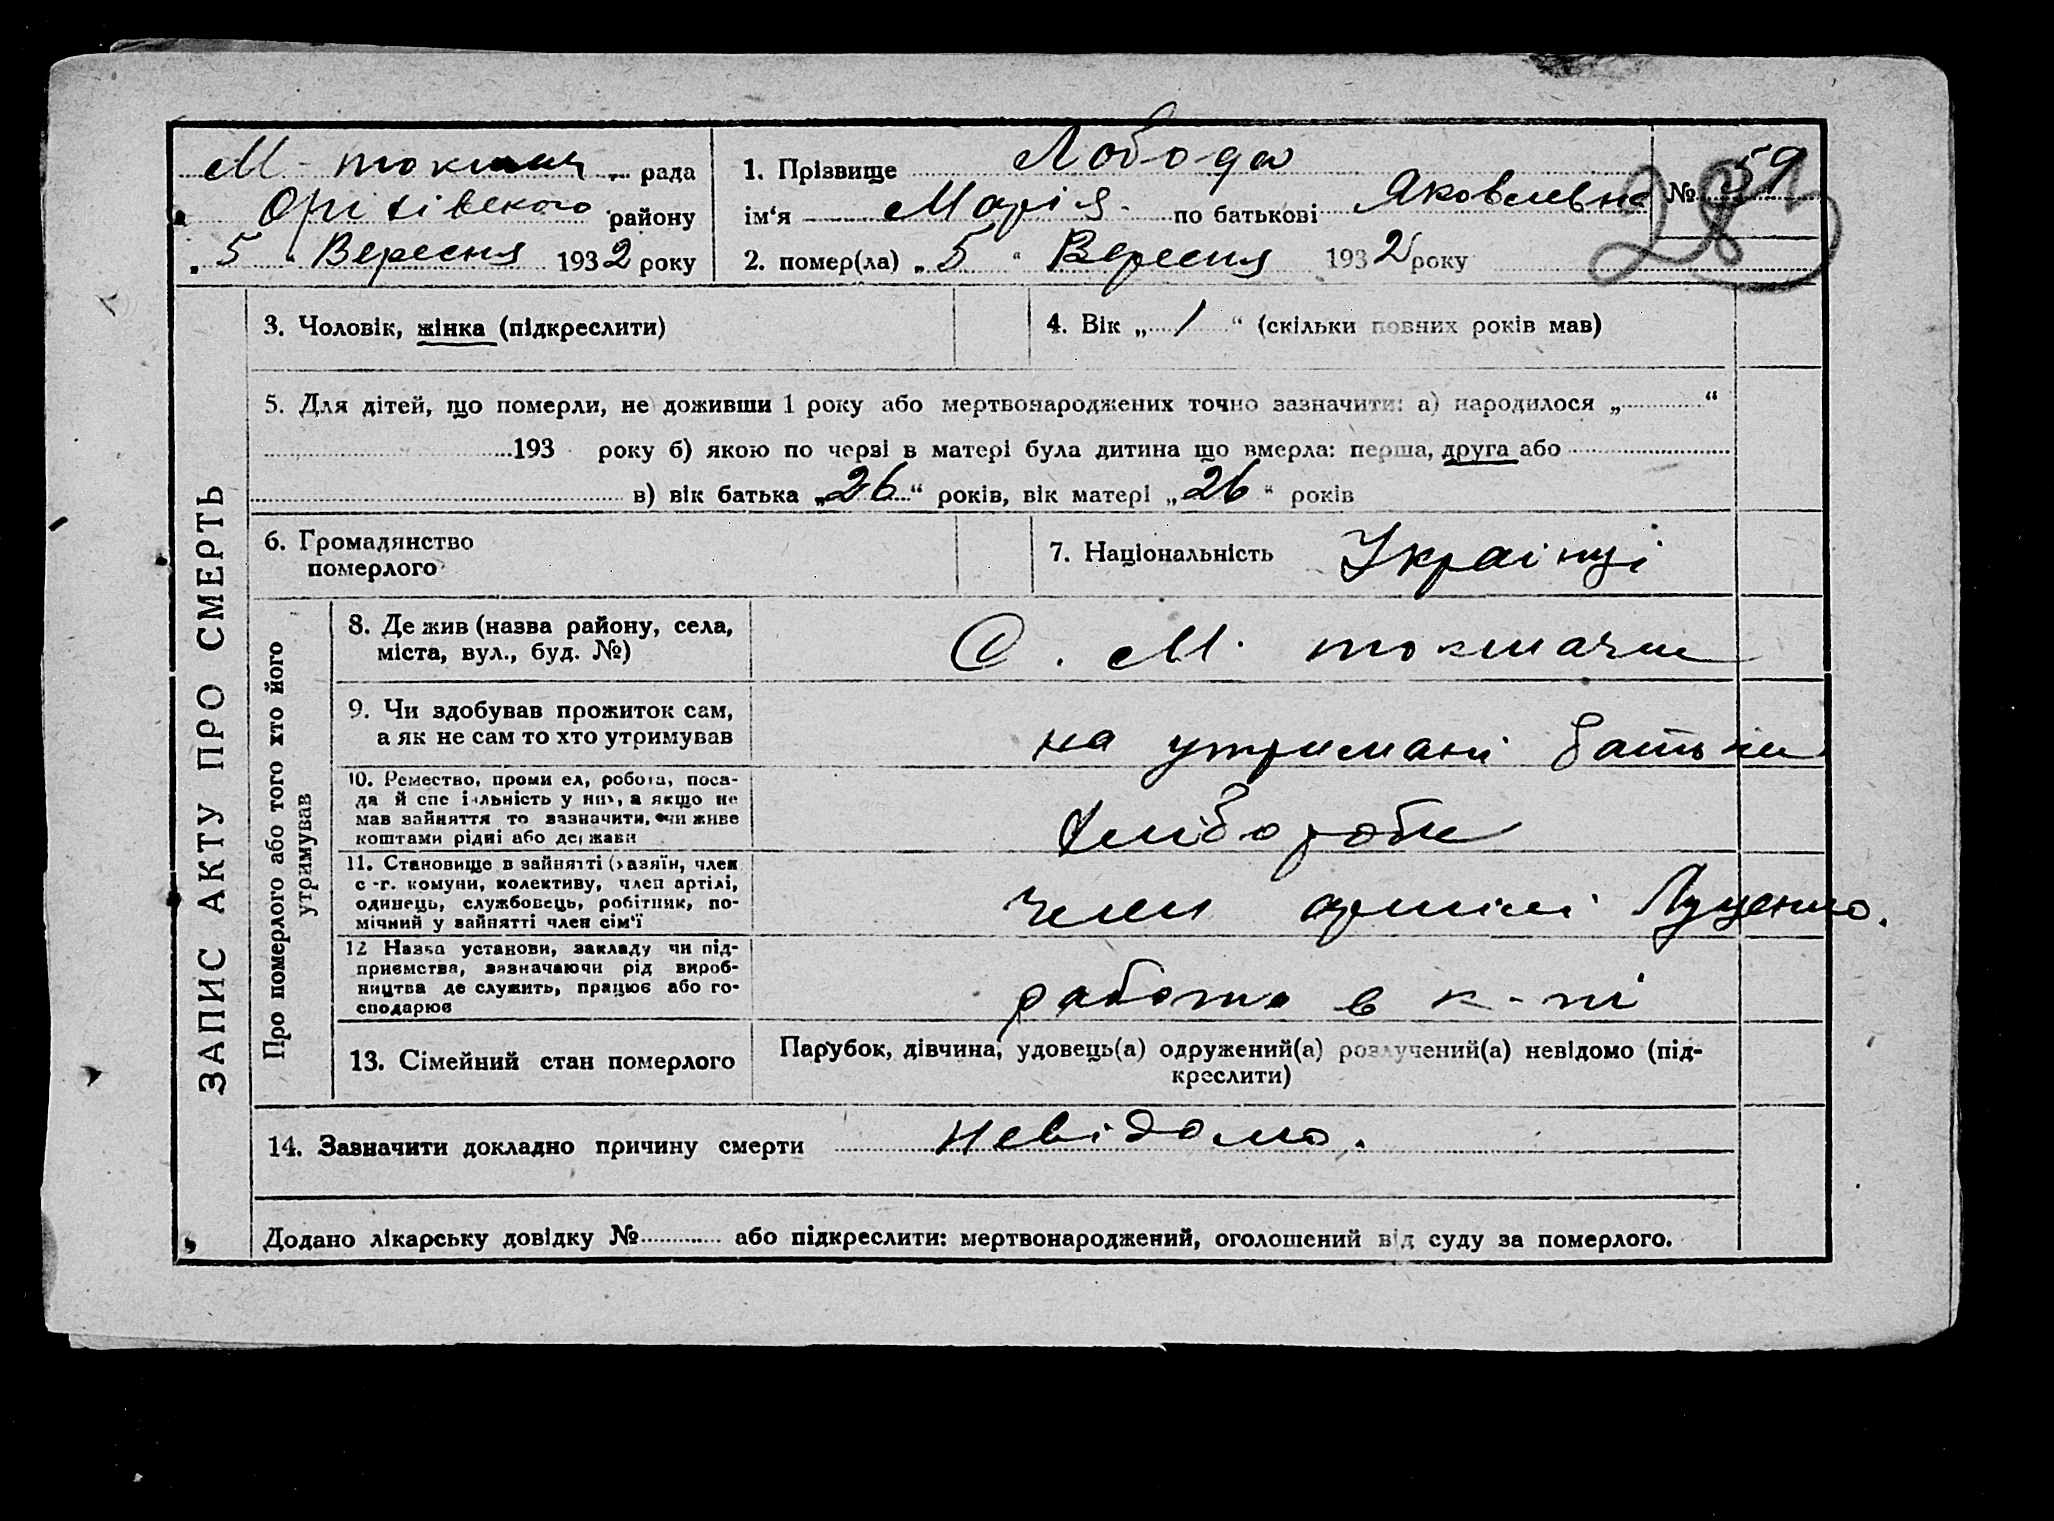 М - токмач рада
Оріхівського району
„ 5 " Вересня 1932 року
1. Прізвище Лобода
ім'я Марія по батькові Яковлевна
2. помер(ла) „ 5 " Вересня 1932 року
№ 59
283
ЗАПИС АКТУ ПРО СМЕРТЬ
3. Чоловік, жінка (підкреслити)
4. Вік „ 1 " (скільки повних років мав)
5. Для дітей, що померли, не доживши 1 року або мертвонароджених точно зазначити: а) народилося „ "
193 року б) якою по черзі в матері була дитина що вмерла: перша, друга або
в) вік батька „26" років, вік матері „26" років
6. Громадянство
померлого
7. Національність Украінці
Про померлого або того хто його
утримував
8. Де жив (назва району, села,
міста, вул., буд. №)
С. М. токмачн
9. Чи здобував прожиток сам,
а як не сам то хто утримував
на утримані батьки
10. Ремество, промисел, робота, поса-
да й спеціяльність у них, а якщо не
мав зайняття то зазначити, чи живе
коштами рідні або держави
хлібороби
11. Становище в зайнятті (хазяїн, член
с.-г. комуни, колективу, член артілі,
одинець, службовець, робітник, по-
мічний у зайнятті член сім'ї
член артілі Луценко.
12 Назва установи, закладу чи під-
приємства, зазначаючи рід вироб-
ництва де служить, працює або го-
сподарює
работа в к-пі
13. Сімейний стан померлого
Парубок, дівчина, удовець(а) одружений(а) розлучений(а) невідомо (під-
креслити)
14. Зазначити докладно причину смерти невідомо.
Додано лікарську довідку № або підкреслити: мертвонароджений, оголошений від суду за померлого.